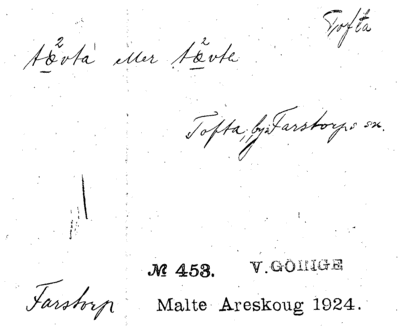 Tofta
tævta eller tævte
Tofta, by i Farstorps sn.
№ 453. V. GÖINGE
Farstorp Malte Areskoug 1924.